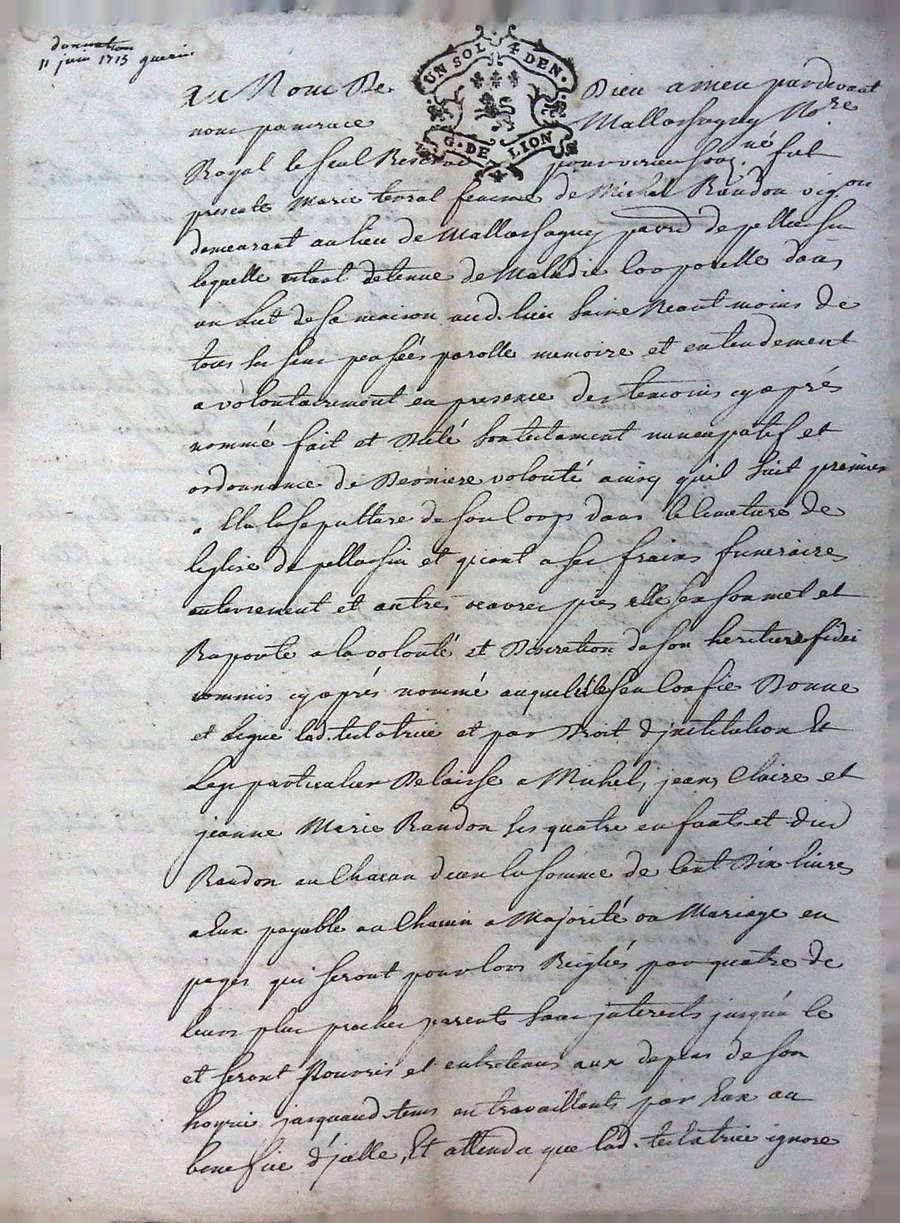 donnation
11 juin 1715 guerin
UN SOL 4 DEN.
G. DE LION
Au Nom De Dieu amen pardevant
nous pancrace Mallassagny No.re
Royal le seul Reservé pour soussig.né fut
presente Marie teyral femme de Michel Randon vig.on
demeurant au lieu de Mallassagny parr.d de pellussin
lequelle estant detenue de Maladie Corporelle dans
un Lict de sa maison aud. lieu saine Neantmoins de
tous ses sens pensées parolle memoire et entendement
a volontairement en presence des temoins cy aprés
nommé fait et Dicté son testament nuncupatif et
ordonnance de Derniere volonté ainsy qu'il suit premier
a Elu la sepulture de son Corps dans le Cimetiere de
leglise de pellussin et quant a ses frains funeraires
enterrement et autres oeuvres pies elle s'en sommet et
Raporte a la volonté et Discretion de son heritier fidei
commis cy aprés nommé auquel elle s'en Confie Donne
et legue lad. testatrice et par droit d'jnstitution Et
Legs particulier Delaisse a Michel, jean, Claire et
jeanne Marie Randon ses quatre enfants et dud
Randon au Chacun d'eux la somme de Cent Dix livres
a Eux payable au Chacun a Majorité ou Mariage en
pages qui seront pour lors Reiglés par quatre de
leurs plus proches parents sans jnterests jusqu'a le
et seront Nourris et entretenus aux depas de son
hoyrie jusquaud. tems en travaillants par Eux au
benefice d'jcelle, Et attendu que lad. testatrice ignore